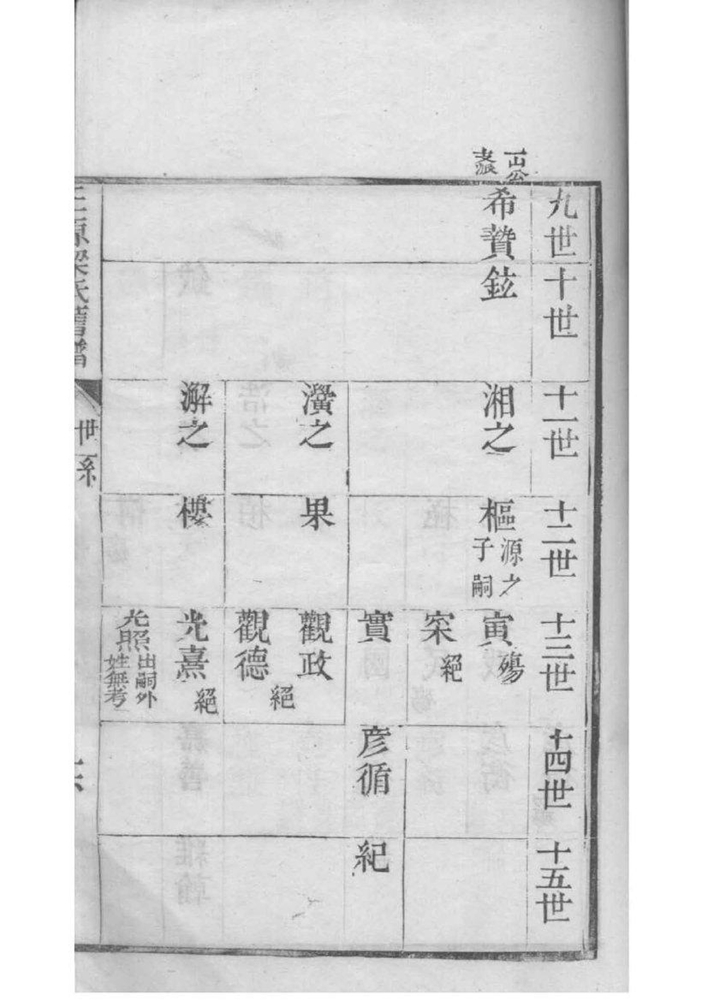 九世
十世
十一世
十二世
十三世
十四世
十五世
一山公
支派
希贊
鉉
湘之
樞
源之
子嗣
寅
殤
宲
絕
實
彦循
紀
瀷之
果
觀政
觀德
絕
澥之
樓
光熹
絕
光照
出嗣外
姓無考
梁氏舊譜
世系